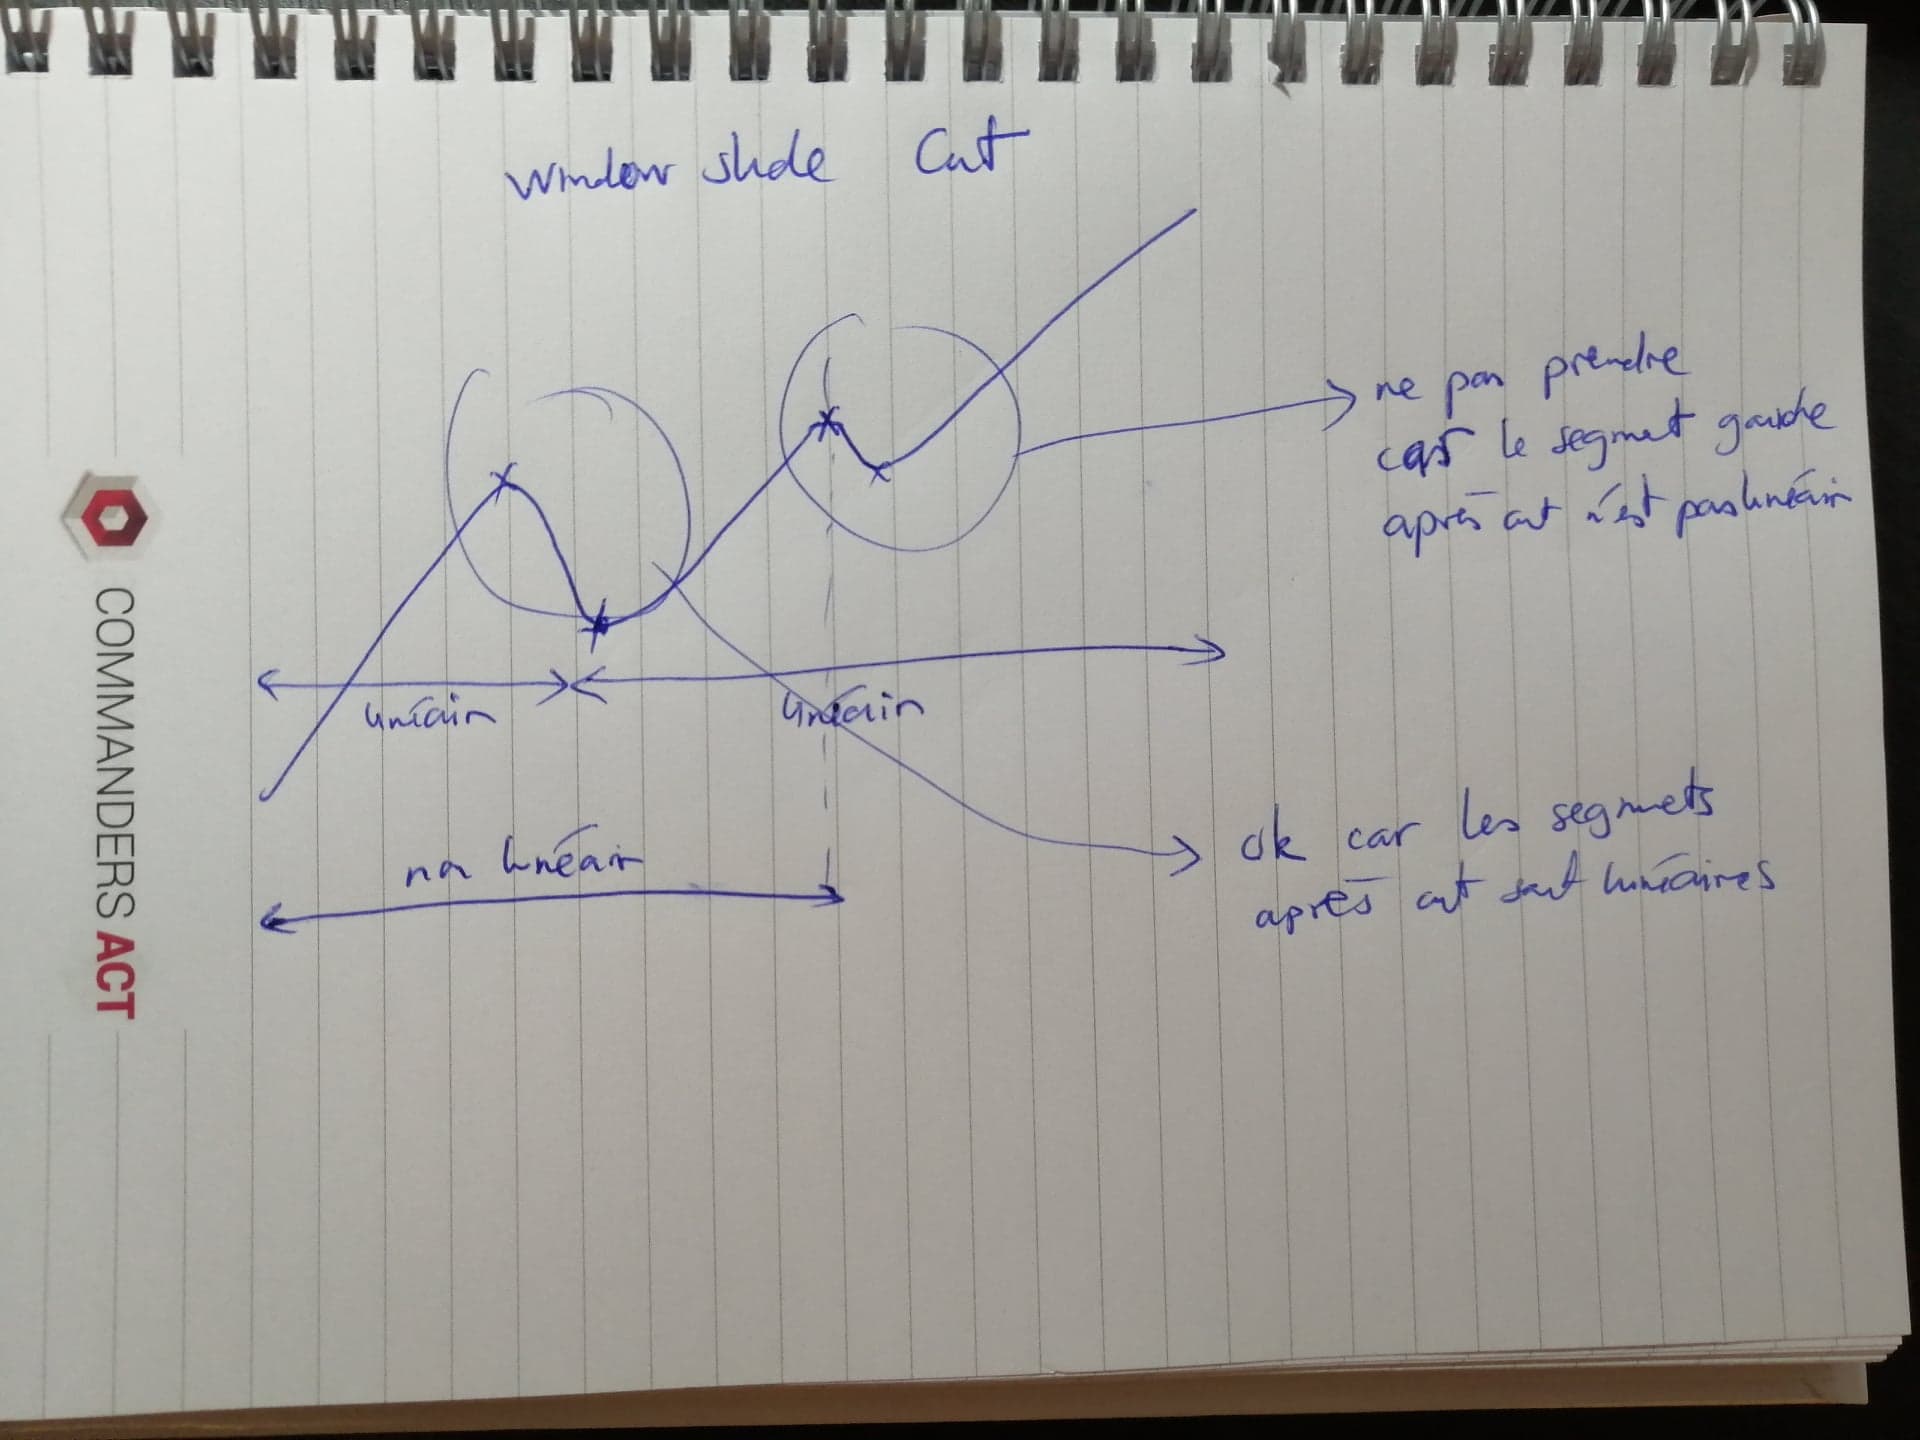 Window slide Cut
ne pas prendre
car le segment gauche
après cut n'est pas linéair
linéair
linéair
ok car les segments
après cut sont linéaires
non linéair
COMMANDERS ACT